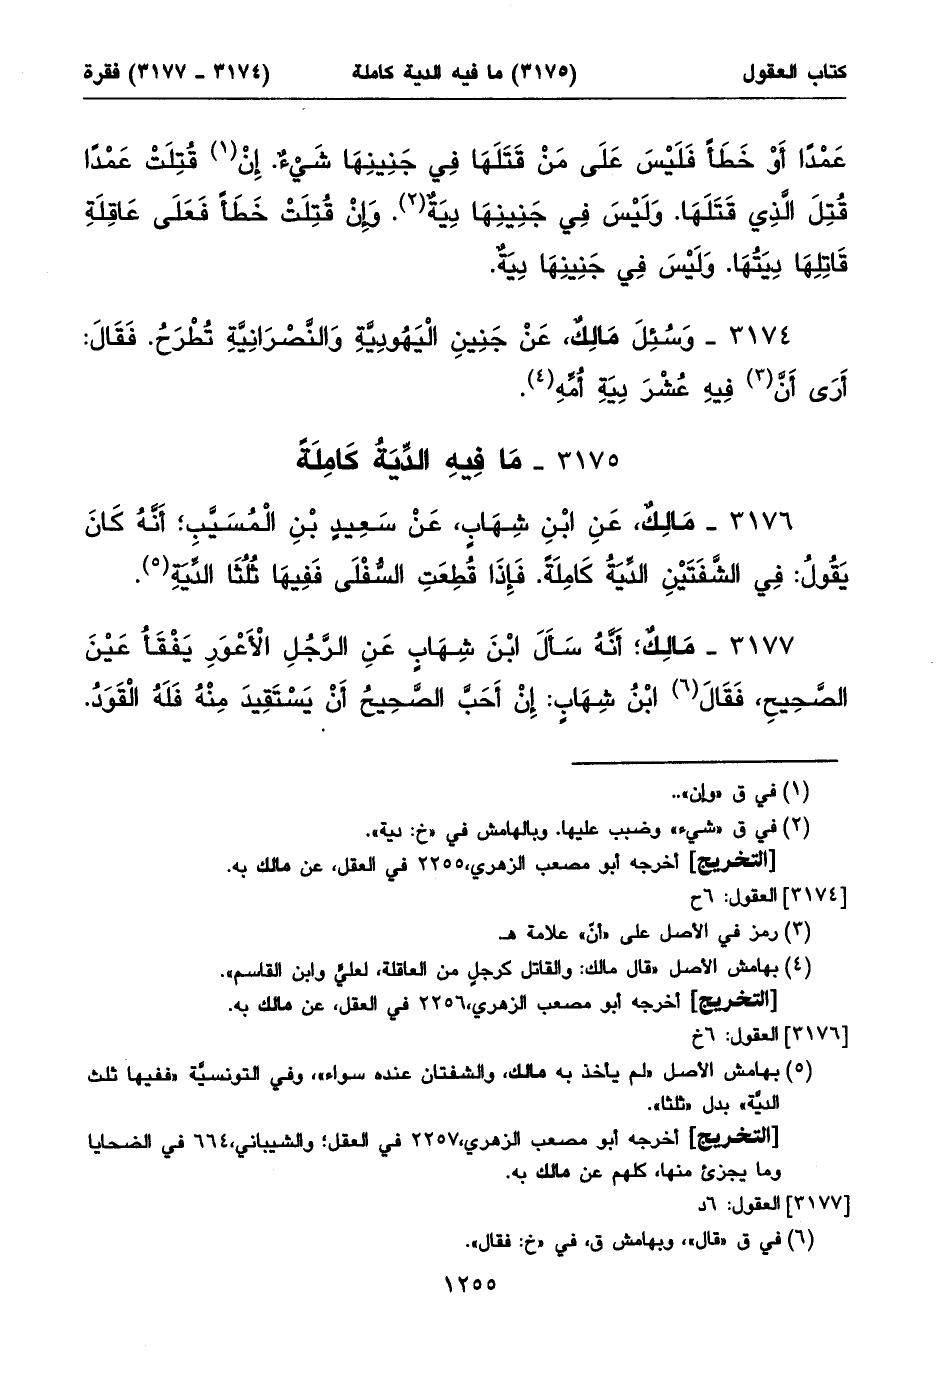 كتاب العقول (٣١٧٥) ما فيه الدية كاملة (٣١٧٤ - ٣١٧٧) فقرة
عَمْدًا أَوْ خَطَأً فَلَيْسَ عَلَى مَنْ قَتَلَهَا فِي جَنِينِهَا شَيْءٌ. إِنْ(١) قُتِلَتْ عَمْدًا
قُتِلَ الَّذِي قَتَلَهَا. وَلَيْسَ فِي جَنِينِهَا دِيَةٌ(٢). وَإِنْ قُتِلَتْ خَطَأً فَعَلَى عَاقِلَةِ
قَاتِلِهَا دِيَتُهَا. وَلَيْسَ فِي جَنِينِهَا دِيَةٌ.
٣١٧٤ - وَسُئِلَ مَالِكٌ، عَنْ جَنِينِ الْيَهُودِيَّةِ وَالنَّصْرَانِيَّةِ تُطْرَحُ. فَقَالَ:
أَرَى أَنَّ(٣) فِيهِ عُشْرَ دِيَةِ أُمِّهِ(٤).
٣١٧٥ - مَا فِيهِ الدِّيَةُ كَامِلَةً
٣١٧٦ - مَالِكٌ، عَنِ ابْنِ شِهَابٍ، عَنْ سَعِيدٍ بْنِ الْمُسَيَّبِ؛ أَنَّهُ كَانَ
يَقُولُ: فِي الشَّفَتَيْنِ الدِّيَةُ كَامِلَةً. فَإِذَا قُطِعَتِ السُّفْلَى فَفِيهَا ثُلُثَا الدِّيَةِ(٥).
٣١٧٧ - مَالِكٌ؛ أَنَّهُ سَأَلَ ابْنَ شِهَابٍ عَنِ الرَّجُلِ الْأَعْوَرِ يَفْقَأُ عَيْنَ
الصَّحِيحِ، فَقَالَ(٦) ابْنُ شِهَابٍ: إِنْ أَحَبَّ الصَّحِيحُ أَنْ يَسْتَقِيدَ مِنْهُ فَلَهُ الْقَوَدُ.
(١) في ق «وإن»..
(٢) في ق «شيء» وضبب عليها. وبالهامش في «خ: دية».
[التخريج] أخرجه أبو مصعب الزهري،٢٢٥٥ في العقل، عن مالك به.
[٣١٧٤] العقول: ٦ح
(٣) رمز في الأصل على «أنّ» علامة هـ
(٤) بهامش الأصل «قال مالك: والقاتل كرجلٍ من العاقلة، لعليٍّ وابن القاسم».
[التخريج] أخرجه أبو مصعب الزهري،٢٢٥٦ في العقل، عن مالك به.
[٣١٧٦] العقول: ٦خ
(٥) بهامش الأصل «لم يأخذ به مالك، والشفتان عنده سواء»، وفي التونسيَّة «ففيها ثلث
الديَّة» بدل «ثلثا».
[التخريج] أخرجه أبو مصعب الزهري،٢٢٥٧ في العقل؛ والشيباني،٦٦٤ في الضحايا
وما يجزئ منها، كلهم عن مالك به.
[٣١٧٧] العقول: ٦د
(٦) في ق «قال»، وبهامش ق، في «خ: فقال».
١٢٥٥